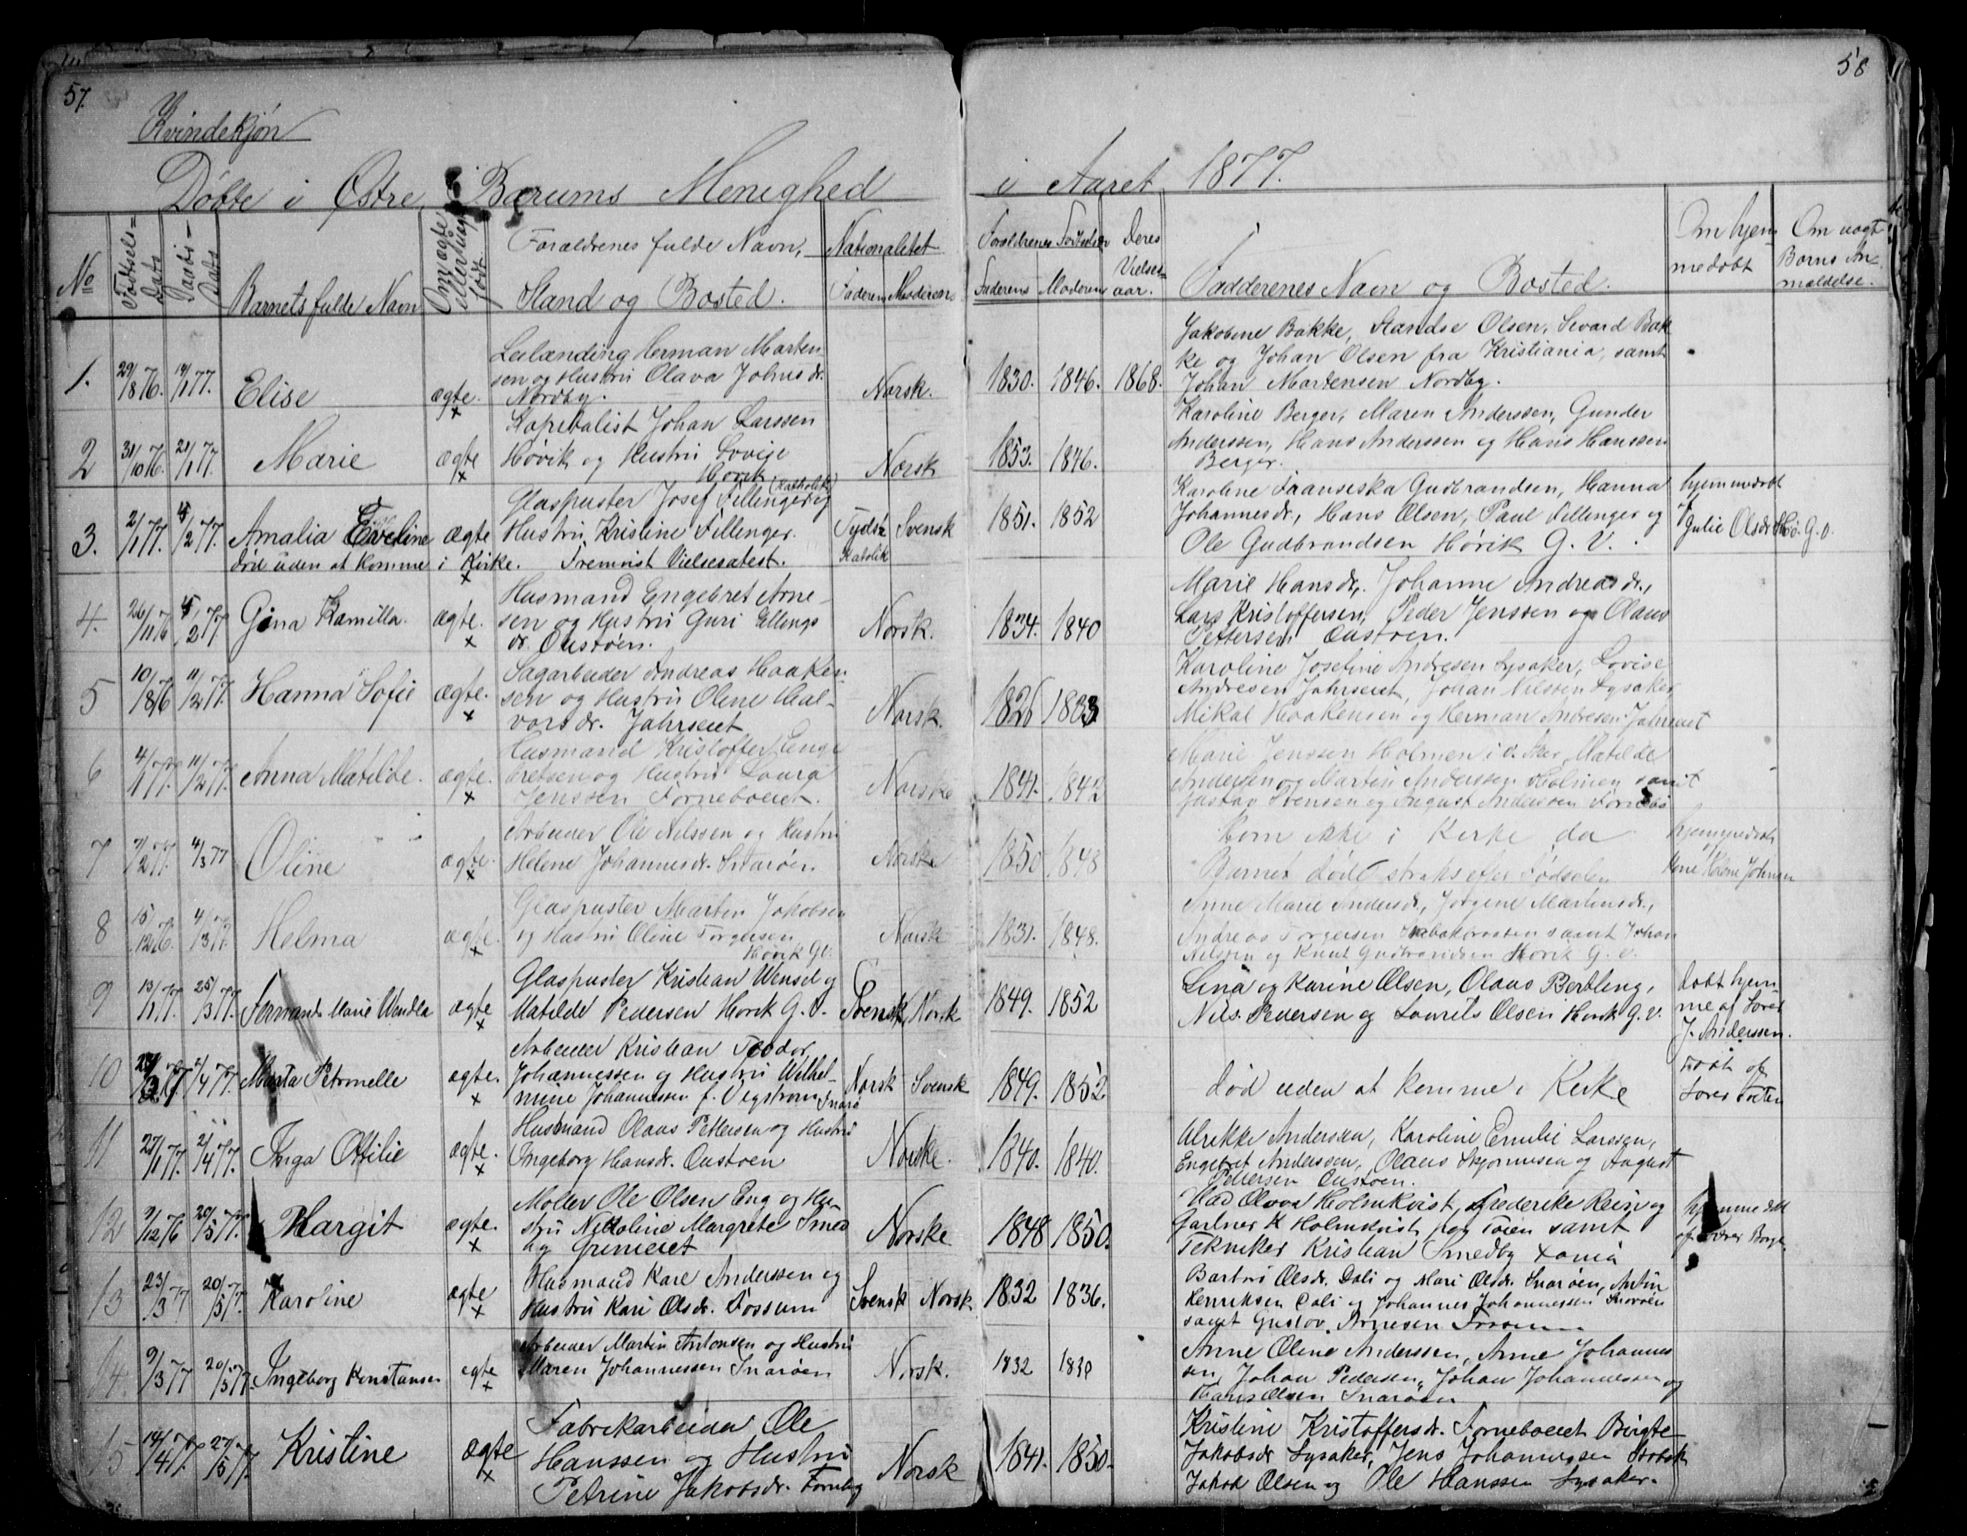 57.
58
Kvindekjøn
Døbte i Østre Bærums Menighed i Aaret 1877.
No
Fødsels-Dato
Daabs-Dato
Barnets fulde Navn
Om ægte eller uægte født
Forældrenes fulde Navn,
Stand og Bosted.
Nationalitet
Faderens Moderens
Forældrenes Fødselsaar
Faderens Moderens
Deres Vielses-aar.
Faddernes Navn og Bosted.
Om hjem-
medøbt
Om uægt
Borns An-
mældelse.
1. 29/8 76. 14/1 77. Elise ægte.
Leilænding Herman Marten-
sen og Hustru Olava Johnsdr.
Nordby.
Norsk. 1830. 1846. 1868.
Jakobine Bakke, Olsen, Sivard Bak
ke og Johan Olsen fra Kristiania, samt
Johan Martensen Nordby.
2 31/10 76. 21/1 77. Marie ægte
Johan Larssen
Høvik og Hustru Lovise
Høvik
Norsk 1853. 1846.
Karoline Berger, Maren Anderssen, Gunder
Anderssen, Hans Anderssen og Hans Hanssen
Berger.
3. 2/1 77. 4/2 77. Amalia Eveline ægte
død uden at komme i Kirke. Fremvist Vielsesatest.
Glaspuster Josef Fillinger og (Katholik)
Hustru Kristine Fillinger.
Tydsk Svensk
Katolik
1851. 1852
Karoline Fransiska Gudbrandsen, Hanna
Johannesdr., Hans Olsen, Paul Fillinger og
Ole Gudbrandsen Høvik G. V.
hjemmedøbt
Julie Olsdr. Høv. G. V.
4. 26/11 76 4/2 77 Gina Kamilla. ægte.
Husmand Engebret Arne-
sen og Hustru Guri Ellings
dr. Oustøen.
Norsk. 1834. 1840
Marie Hansdr. Johanne Andreasdr.,
Lars Kristoffersen, Peder Jenssen og Olaus
Pettersen Oustøen.
5 10/8 76 11/2 77. Hanna Sofie ægte.
Sagarbeider Andreas Haaken-
sen og Hustru Oline Hal-
vorsdr. Jahrseiet
Norsk. 1826 1833
Karoline Josefine Andresen Lysaker, Lovise
Andresen Jahrseiet, Johan Nilssen Lysaker
Mikal Haakensen og Herman Andresen Jahrseiet
6 4/1 77. 11/2 77. Anna Matilde. ægte.
Husmand Kristoffer Enge
bretsen og Hustru Laura
Jenssen Forneboeiet.
Norske 1841. 1842
Marie Jenssen Holmen i v. Aker, Matilde
Andersen og Martin Anderssen Holmen samt
Gustav Svensen og August Anderssen Fornebo
7 7/2 77. 4/3 77 Oline ægte.
Arbeider Ole Nilssen og Hustru
Helene Johannesdr. Snarøen.
Norske 1850 1848
Kom ikke i Kirke da
Barnet døde straks efter Fødselen
hjemmedøbt
Helene Johnsen
8 15/12 76. 4/3 77. Helma ægte.
Glaspuster Martin Jakobsen
og Hustru Oline Torgersen
Høvik G.V.
Norske 1831. 1848.
Anne Marie Andersdr., Jørgine Martinsdr.,
Andreas Torgersen samt Johan
Nilssen og Knut Gudbrandsen Høvik G. V.
9 13/1 77. 25/3 77. Fernanda Marie Wendla ægte
Glaspuster Kristian Wensel og
Matilde Pedersen Høvik G. V.
Svensk Norsk 1849. 1852
Lina og Karine Olsen, Olaus Bertling,
Nils Pedersen og Laurits Olsen Høvik G. V.
døbt hjem-
me af Lærer
J. Anderssen.
10 2/4 77. Marta Petronelle ægte.
Arbeider Kristian Teodor
Johannessen og Hustru Wilhel-
mine Johannessen f. Vegstrøm Snarø
Norsk Svensk 1849. 1852
død uden at komme i Kirke
døbt af
Lærer Toeten
11 27/1 77. 2/4 77. Inga Ottilie ægte.
Husmand Olaus Pettersen og Hustru
Ingeborg Hansdr. Oustøen
Norske. 1840. 1840.
Ulrikke Anderssen, Karoline Emilie Larssen,
Engebret Anderssen, Olaus Skjønnesen og August
Pettersen Oustøen.
12 9/12 76 20/5 77. Margit ægte.
Møller Ole Olsen Eng og Hu-
stru Nikoline Margrete Smed
by Grinieiet
Norske 1848 1850.
Mad. Olava Holmkvist, Frederike Rein og
Gartner K Holmkvist fra Tøien samt
Tekniker Kristian Smedby
hjemmedøbt
af Lærer
13 23/3 77 20/5 77. Karoline ægte
Husmand Karl Anderssen og
Hustru Kari Olsdr. Fossum
Svensk Norsk 1832 1836.
Olsdr. Dali og Mari Olsdr. Snarøen, Antin
Henriksen Dali og Johannes Johannessen Snarøen
samt Gustav Arnesen Fossum
14. 9/3 77 20/5 77. Ingeborg Konstanse ægte
Arbeider Martin Antonsen og Hustru
Maren Johannessen Snarøen
Norsk. 1832 1830
Anne Oline Anderssen, Anne Johannes
sen, Johan Pedersen, Johan Johannessen og
Hans Olsen Snarøen
15 14/4 77. 27/5 77. Kristine ægte
Fabrikarbeider Ole
Hanssen og Hustru
Petrine Jakobsdr. Forneby
Norsk 1841. 1850.
Kristine Kristoffersdr. Forneboeiet Birgte
Jakobsdr Lysaker, Jens Johannessen Stabæk
Jakob Olsen og Ole Hanssen Lysaker.